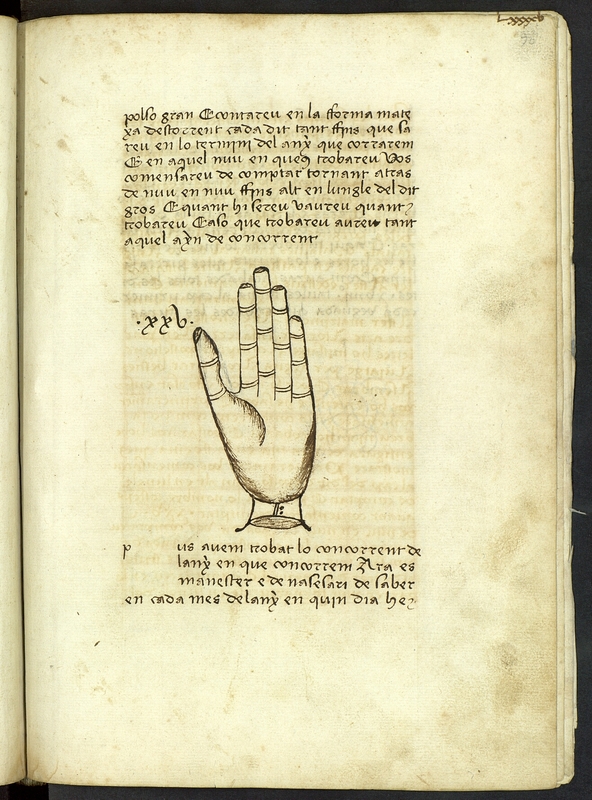 lxxxxv
polso gran E contareu en la fforma mate
xa destorrent cada dit tant ffins que sa
reu en lo termini del any que correrem
E en aquel nuu en queus trobareu vos
comensareu de comptar tornant atras
de nuu en nuu ffins alt en lungle del dit
gros E quant hi sereu vaureu quant
trobareu E aso que trobareu aureu tant
aquel ayn de concorrent
·xxv·
p us avem trobat lo concorrent de
lany en que concorrem Ara es
manester e de nasesari de saber
en cada mes delany en quin dia he